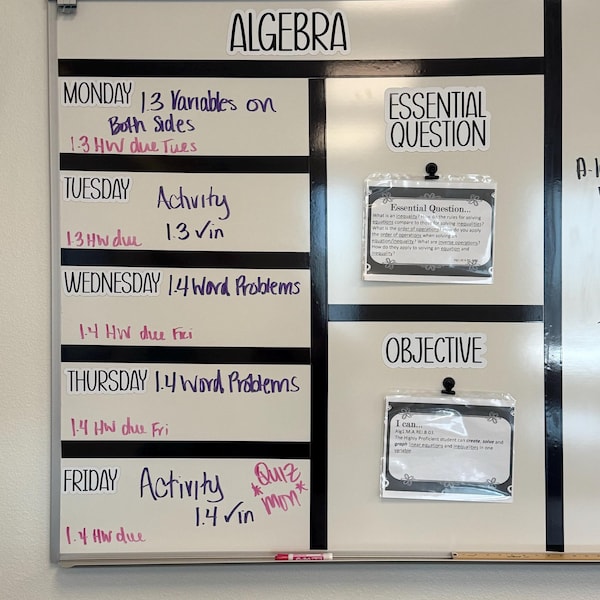 ALGEBRA
MONDAY 1.3 Variables on
Both Sides
1.3 HW due Tues
TUESDAY Activity
1.3 ✓in
1.3 HW due
WEDNESDAY 1.4 Word Problems
1.4 HW due Fri
THURSDAY 1.4 Word Problems
1.4 HW due Fri
FRIDAY Activity
1.4 ✓in
*Quiz
mon*
1.4 HW due
ESSENTIAL
QUESTION
Essential Question...
What is an inequality? How do the rules for solving
equations compare to those for solving inequalities?
What is the order of operations? How do you apply
the order of operations when solving an
equation/inequality? What are inverse operations?
How do they apply to solving an equation and
inequality?
OBJECTIVE
I can...
The Highly Proficient student can create, solve and
graph linear equations and inequalities in one
variable.